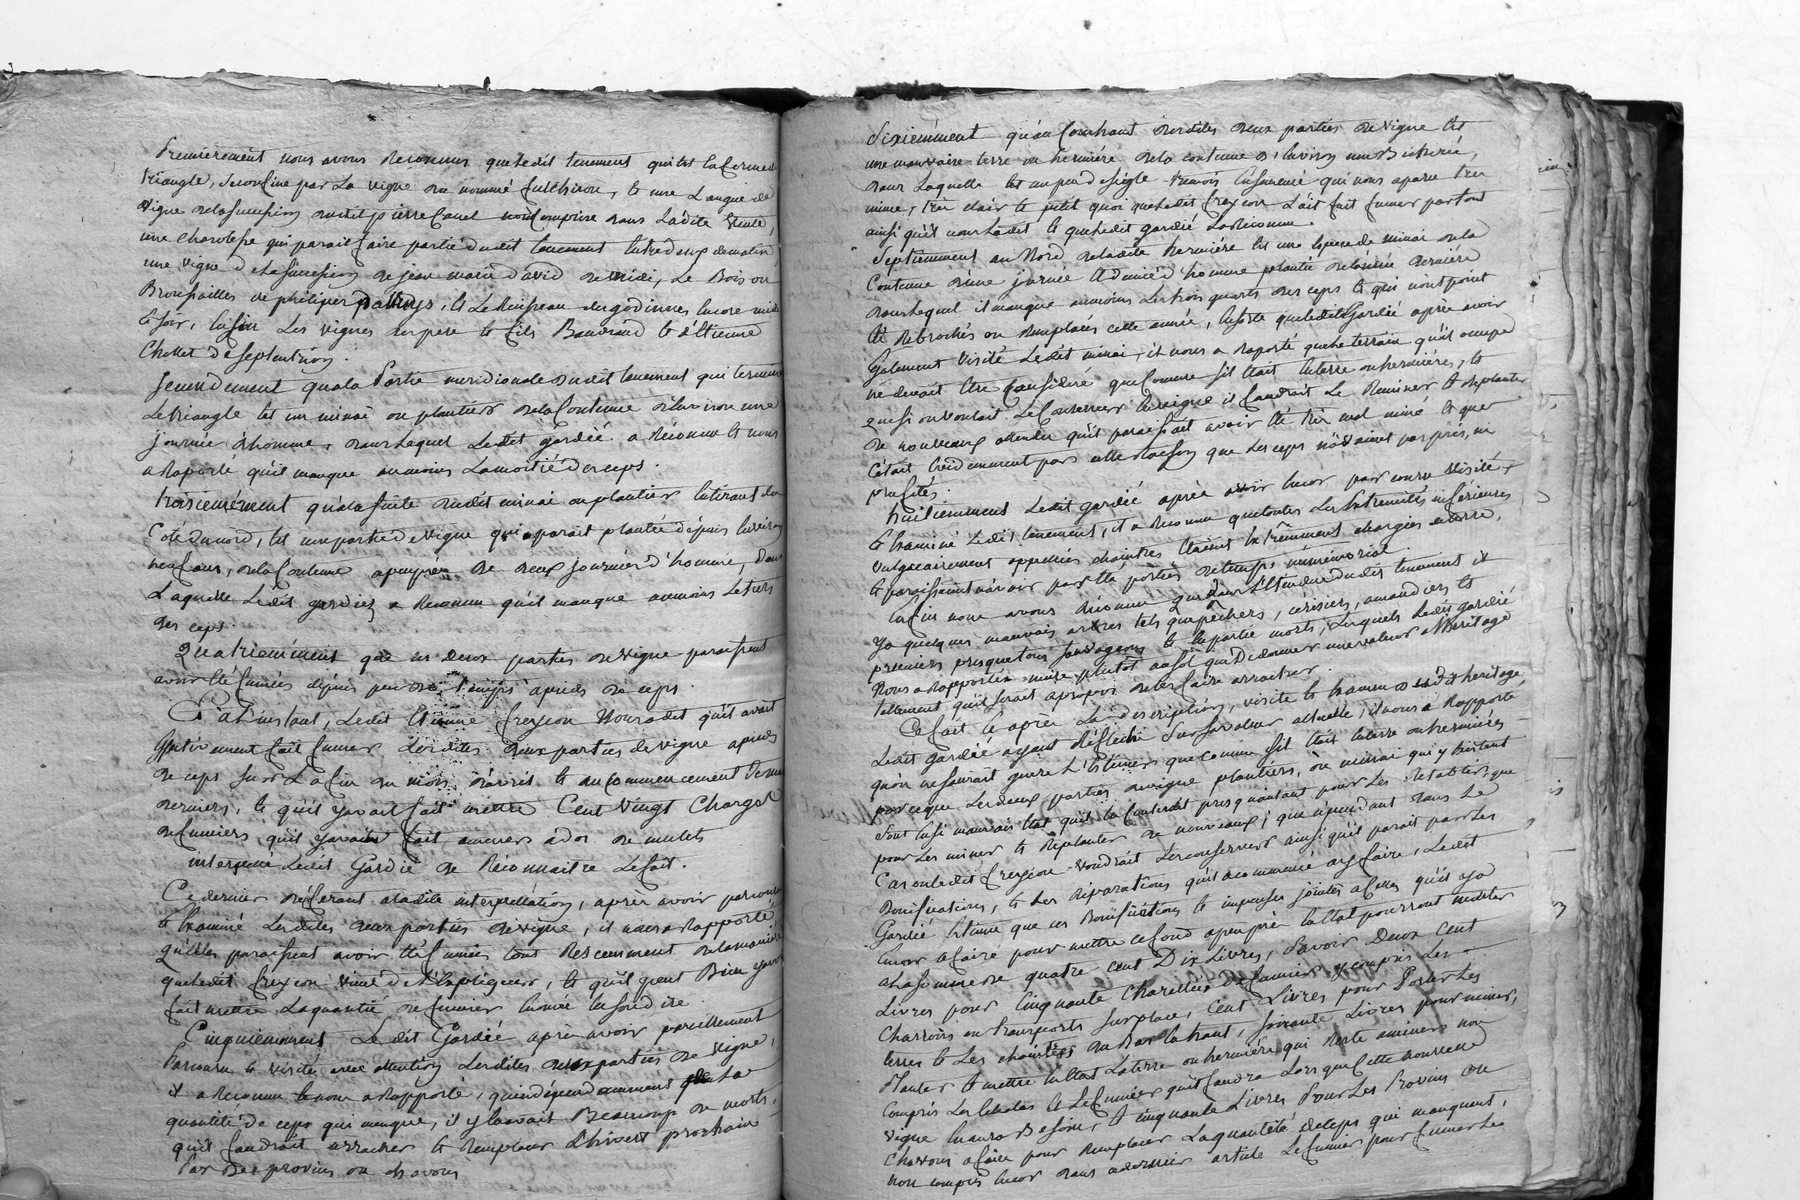 Premierement nous avons Reconnus queledit tenement qui est en forme de
triangle, se confine par La vigne du nommé Cutchiron, et une Langue de
vigne delasuccession dudit pierre Canel non comprise dans Ladite vente,
une charolesse qui parait faire partie dudit tenement entredeux dematin
une vigne delasuccession de jean marie david de midi, Le Bois ou
Broussailles de philiper et Le Ruisseau des godinnes encore midi
et soir, enfin Les vignes du pere et fils Baudrand et d'Etienne
Chollet deseptentrion.
Secondement quala Partie meridionale dudit tenement qui termine
Le triangle est un minai ou plantier dela Contenue d'environ une
journée d'homme, dans Lequel Ledit gardié a Reconnu et nous
a Raporté qu'il manque aumoins Lamoitié des ceps.
troisiemement qu'ala suite dudit minai ou plantier entirant du
Coté dunord, est une partie de vigne qui aparait plantée depuis environ
neuf ans, dela Contenue apeupres de deux journées d'homme, dans
Laquelle Ledit gardiez a Reconnu qu'il manque aumoins Letiers
des ceps.
quatriemement que les deux parties de vigne paraissent
avoir été fumées depuis peu de temps apieds de ceps.
Et al'instant, Ledit Etienne freycon Nous adit qu'il avait
effectivement fait fumer Lesdites deux parties de vigne apieds
de ceps sur La fin du mois d'avril et au commencement de mai
derniers, et qu'il yavait fait mettre Cent vingt Charges
defumiers qu'il yavait fait amener ados de mulets
interpellé Ledit Gardié de Reconnaitre Lefait.
Ce dernier déferant aladite interpellation, après avoir parcouru
et Examiné Lesdites deux parties devigne, il nous a Rapporté
qu'elles paraissent avoir été fumées tout Recemment delamaniere
queledit freycon vient de l'expliquer, et qu'il peut Bien yavoir
fait mettre Laquantité de fumier enoncée susdite.
Cinquiemement Ledit Gardié après avoir pareillement
Parcouru et visité avec attention Lesdites deux parties de vigne,
il a Reconnu et nous a Rapporté, qu'independamment de La
quantité de ceps qui manque, il y en avait Beaucoup de morts,
qu'il faudrait arracher et Remplacer L'hivert prochain
Par des provins ou chavons
Sixiemement qu'au Couchant desdites deux parties de vigne est
une mauvaise terre ou hermiére dela contenue d'environ une Bicherée,
dans Laquelle est un peu de seigle tremois ensemencé qui nous aparu très
mince, très clair et petit quoi queledit freycon L'ait fait fumer partout
ainsi qu'il nous L'adit et queledit gardié La Reconnu.
Septiemement au Nord deladite hermiére est une Espece de minai dela
Contenue d'une jornée et demie d'homme plantée de l'année derniére
dans Lequel il manque aumoins Les trois quarts des ceps et qui n'ont point
été Rebrochés ou Remplacés cette année, ensorte queledit Gardié après avoir
Egalement Visité Ledit minai, il nous a Raporté que le terrain qu'il occupe
ne devait être Considéré que Comme s'il était enterre ou hermiéres, et
que si on voulait Le Conserver en vigne il faudrait Le Reminer et Replanter
de nouveaux attendu qu'il paraissait avoir été très mal miné et que
C'était évidemment par cette Raison que Les ceps n'avaient pas pris, ni
profités.
huitiemement Ledit gardié après avoir encor parcouru visité,
et Examiné Ledit tenement, il a Reconnu que toutes Les Extremités inférieures
vulgairement appellées chaintres étaient extrêmement chargées deterre,
et paraissaient n'avoir pas été portées detemps immémorial.
enfin nous avons Reconnu que dans L'étendue dudit tenement il
ya quelques mauvais arbres tels que pêchers, cérisiers, amandiers et
pruniers presque tous sauvageons et en partie morts, Lesquels Ledit gardié
Nous a Rapporté nuire plutôt au sol que de donner une valeur al'héritage
tellement qu'il serait apropos de les faire arracher.
Ce fait et après La description, visite et Examen dudit héritage,
Ledit gardié ayant Réflechi Sur sa valeur actuelle, il nous a Rapporté
qu'on ne saurait guere L'Estimer que comme s'il était enterre ou hermiéres
parceque Lesdeux parties devigne plantiers, ou minai qui y Existent
Sont ensi mauvais état qu'il en Couterait presqu'autant pour Les Retablir que
pour Les miner et Replanter de nouveaux; que cependant dans Le
Cas ou ledit freycon voudrait Les conserver ainsi qu'il parait par Les
Bonifications, et Les Réparations qu'il a commencé ay faire, Ledit
Gardié Estime que ces Bonifications et impenses jointes a Celles qu'il ya
Encor afaire pour mettre ce fond apeuprès en Etat pourront monter
a La somme de quatre cent Dix Livres, savoir Deux cent
Livres pour Cinquante Charettées de fumier y compris Les
Charrois ou transports sur place, Cent Livres pour Porter Les
terres et Les chaintres du Bas en haut, soixante Livres pour miner,
Planter et mettre en Etat Laterre ou hermiére qui Reste aminer non
Compris Les Echalas et Le fumier qu'il faudra Lors que cette nouvelle
vigne en aura Besoin, et Cinquante Livres Pour Les Provins ou
Chavons afaire pour Remplacer Laquantité deceps qui manquent,
non compris encor dans cedernier article Le fumier pour fumer Les